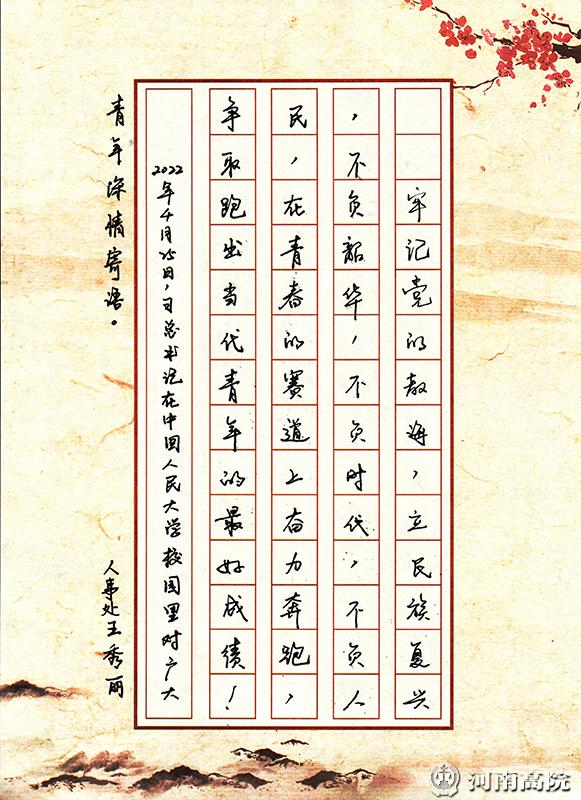 牢记党的教诲，立民族复兴
，不负韶华，不负时代，不负人
民，在青春的赛道上奋力奔跑，
争取跑出当代青年的最好成绩！
2022年4月25日，习总书记在中国人民大学校园里对广大
青年深情寄语。
人事处王秀丽
河南高院